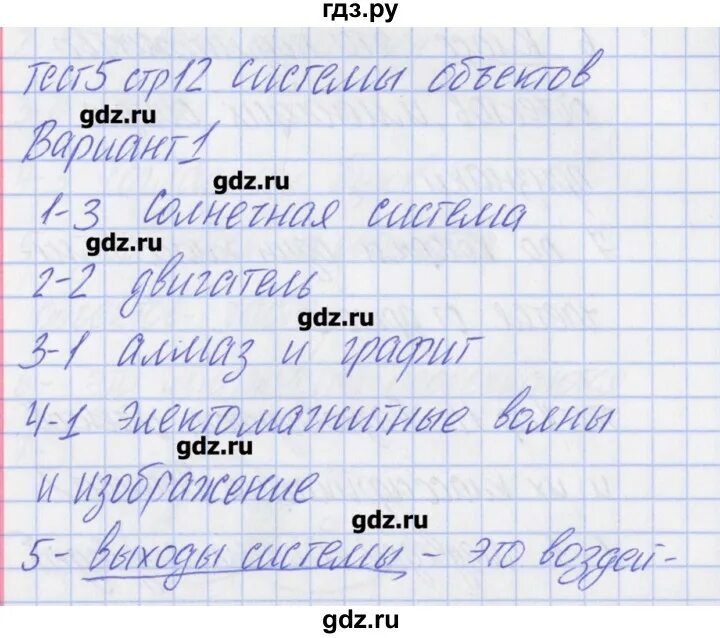 гдз.ру
Тест 5 стр 12 Системы объектов
gdz.ru
Вариант 1
gdz.ru
1-3 Солнечная система
gdz.ru
2-2 двигатель
gdz.ru
3-1 алмаз и графит
4-1 электомагнитные волны
gdz.ru
и изображение
gdz.ru
5- выходы системы - это воздей-
gdz.ru